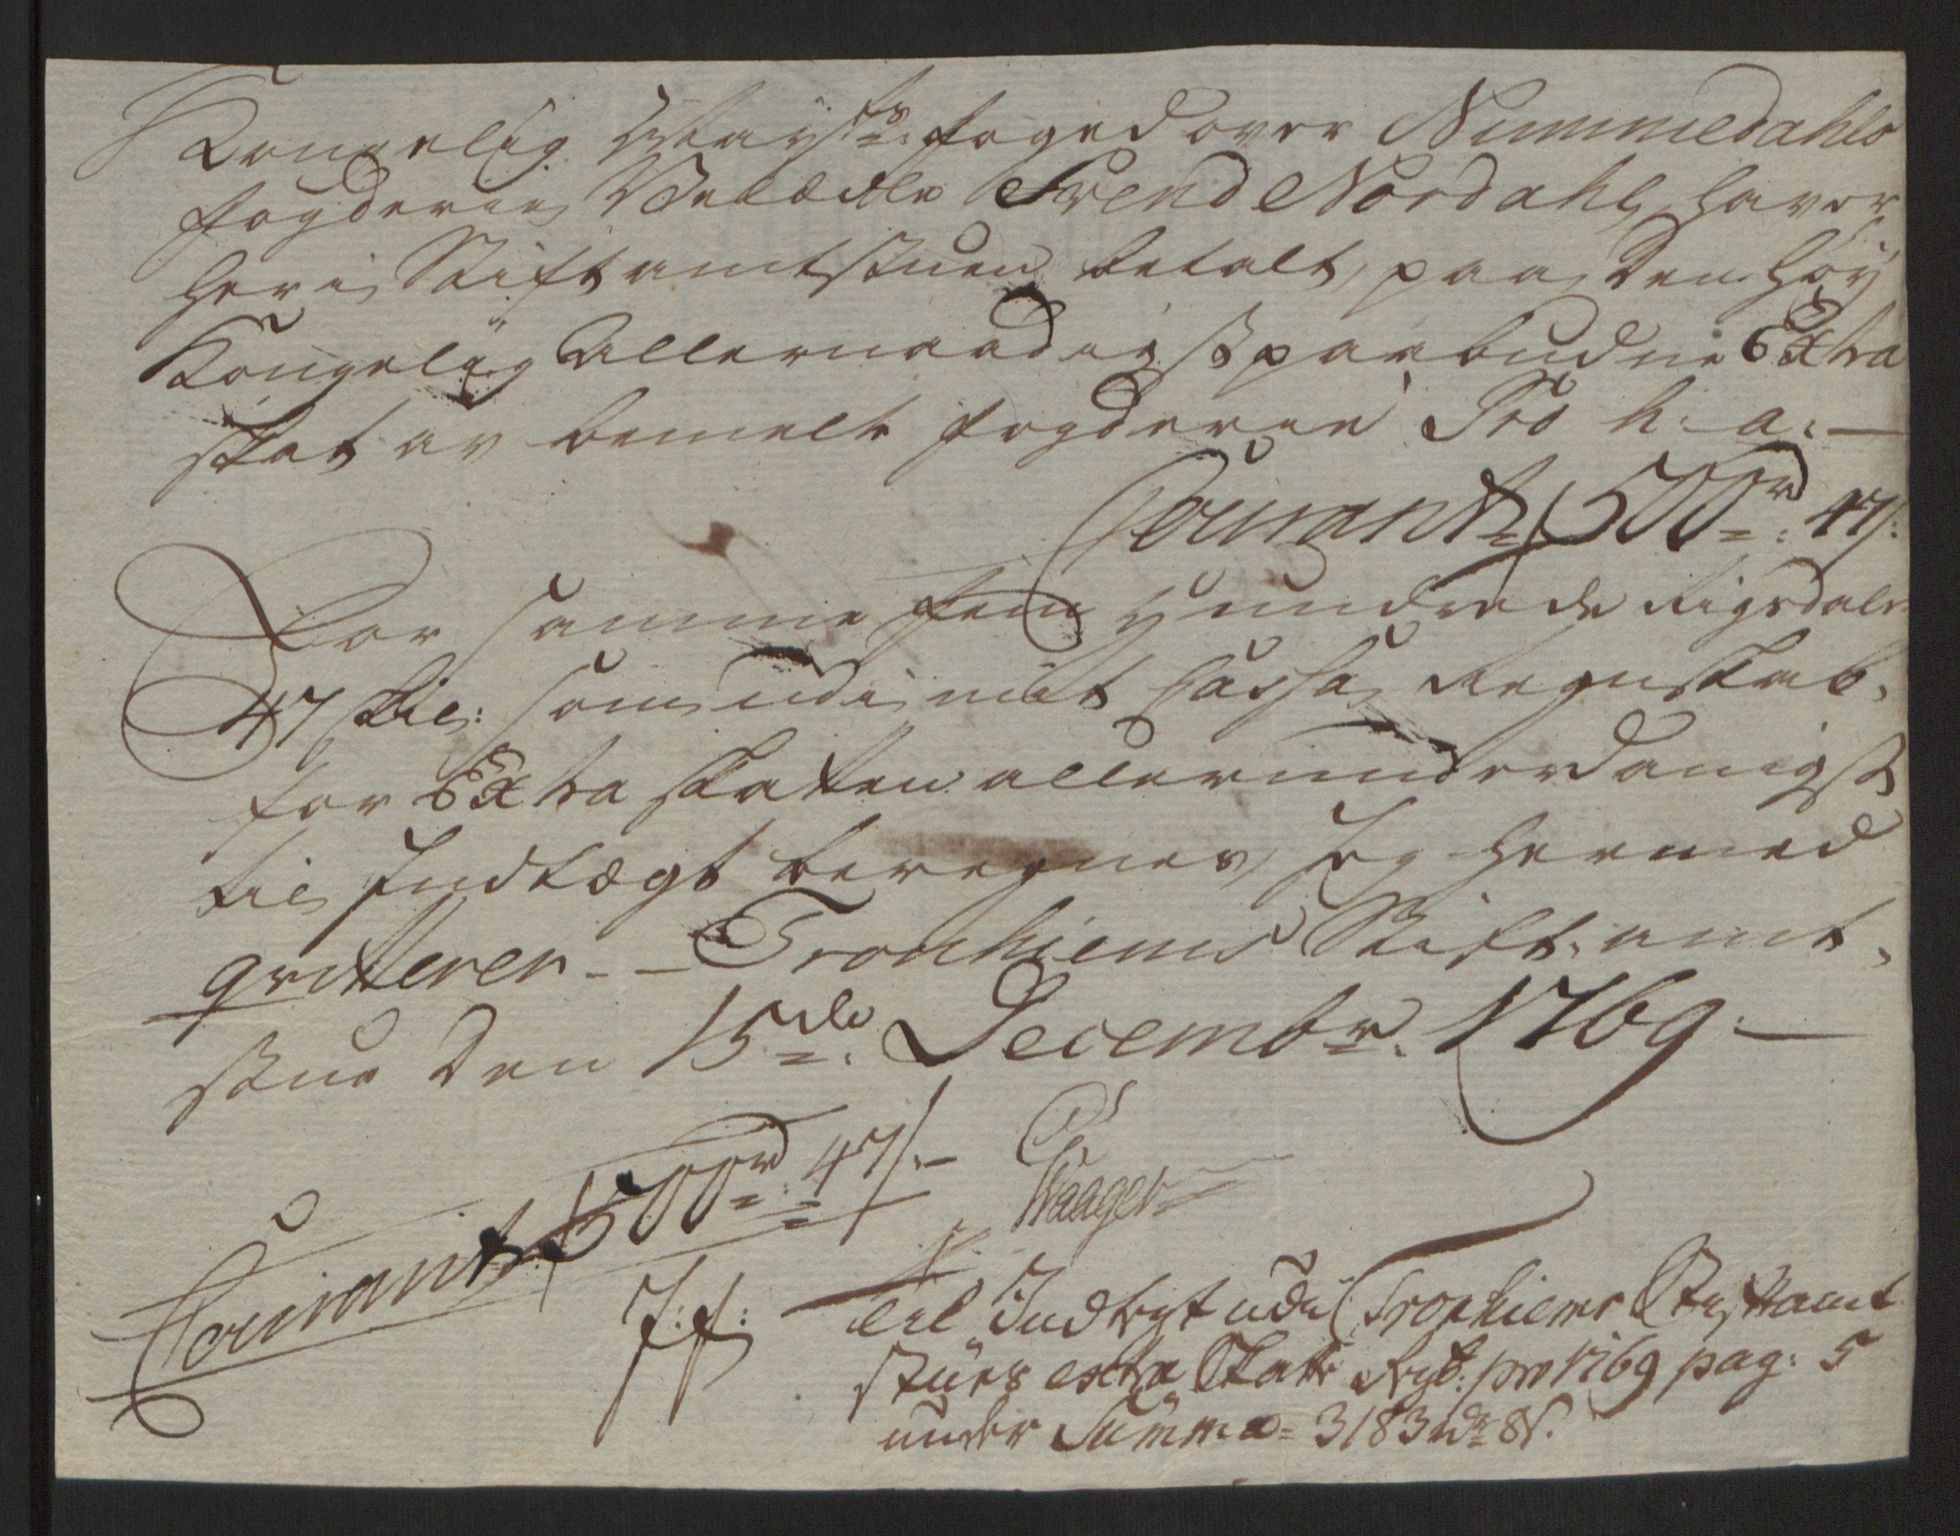 Kongelig Mayts: foged over Nummedahls
fogderie Velædle Svend Nordahl, haver
her i Stiftamtstuen betalt, paa den høy
Kongelig Allernaadigst paabudne Extra
skat av bemelte fogderie Pro h: a: —
Courant 500 rd: 47 s:
For samme fem Hundrede Rigsdaler
47 sk: som udi mit Cassa Regnskab
for Extra skatten allerunderdanigst
til Indtægt beregnes, Jeg hermed
qvitterer. — Tronhiems Stift-amt-
stue den 15de: Decembr: 1769. —
Courant 500 rd: 47 s: —
Waager
J: f: til Indtegt udi Tronhiems Stiftamt
stues extra Skatte Regb: pro 1769 pag: 5
under Summa = 3183 rdr 8 s.